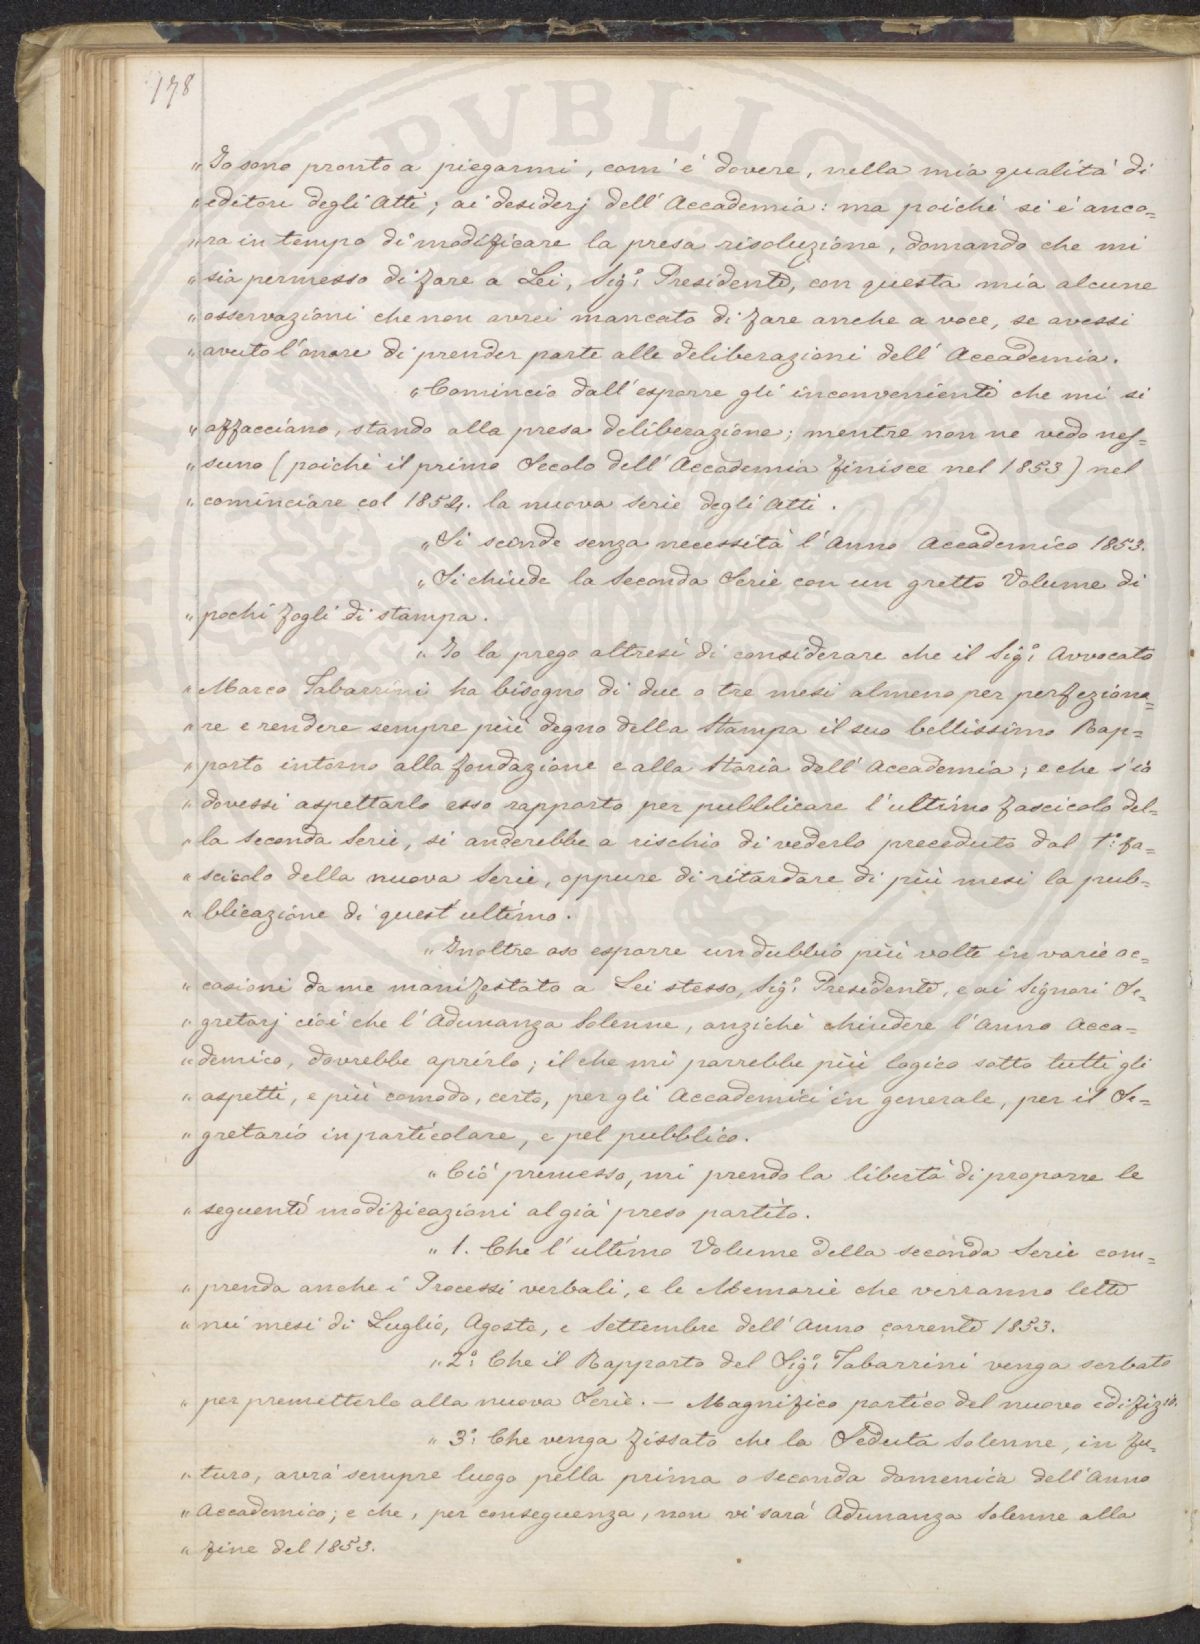 178
„ Io sono pronto a piegarmi, com' è dovere, nella mia qualità di
„ editore degli Atti; ai desiderj dell' Accademia: ma poichè si è anco=
„ ra in tempo di modificare la presa risoluzione, domando che mi
„ sia permesso di fare a Lei, Sig.r Presidente, con questa mia alcune
„ osservazioni che non avrei mancato di fare anche a voce, se avessi
„ avuto l'onore di prender parte alle deliberazioni dell' Accademia.
„ Comincio dall' esporre gli inconvenienti che mi si
„ affacciano, stando alla presa deliberazione; mentre non ne vedo nes=
„ suno (poichè il primo Secolo dell' Accademia finisce nel 1853) nel
„ cominciare col 1854. la nuova serie degli Atti.
„ Si scinde senza necessità l' Anno Accademico 1853.
„ Si chiude la Seconda Serie con un gretto Volume di
„ pochi fogli di stampa.
„ Io la prego altresì di considerare che il Sig.r Avvocato
„ Marco Tabarrini ha bisogno di due o tre mesi almeno per perfeziona=
„ re e rendere sempre più degno della Stampa il suo bellissimo Rap=
„ porto intorno alla fondazione e alla Storia dell' Accademia; e che s'io
„ dovessi aspettarlo esso rapporto per pubblicare l'ultimo fascicolo del=
„ la Seconda Serie, si anderebbe a rischio di vederlo preceduto dal 1.° fa=
„ scicolo della nuova Serie, oppure di ritardare di più mesi la pub=
„ blicazione di quest' ultimo.
„ Inoltre oso esporre un dubbio più volte in varie oc=
„ casioni da me manifestato a Lei stesso, Sig.r Presidente, e ai Signori Se=
„ gretarj cioè che l' Adunanza Solenne, anzichè chiudere l' Anno Acca=
„ demico, dovrebbe aprirlo; il che mi parrebbe più logico sotto tutti gli
„ aspetti, e più comodo, certo, per gli Accademici in generale, per il Se=
„ gretario in particolare, e pel pubblico.
„ Ciò premesso, mi prendo la libertà di proporre le
„ seguenti modificazioni al già preso partito.
„ 1. Che l'ultimo Volume della seconda Serie com=
„ prenda anche i Processi verbali, e le Memorie che verranno lette
„ nei mesi di Luglio, Agosto, e Settembre dell' Anno corrente 1853.
„ 2.° Che il Rapporto del Sig.r Tabarrini venga serbato
„ per premetterlo alla nuova Serie. — Magnifico portico del nuovo edifizio.
„ 3.° Che venga fissato che la Seduta Solenne, in fu=
„ turo, avrà sempre luogo nella prima o seconda domenica dell' Anno
„ Accademico; e che, per conseguenza, non vi sarà Adunanza Solenne alla
„ fine del 1853.